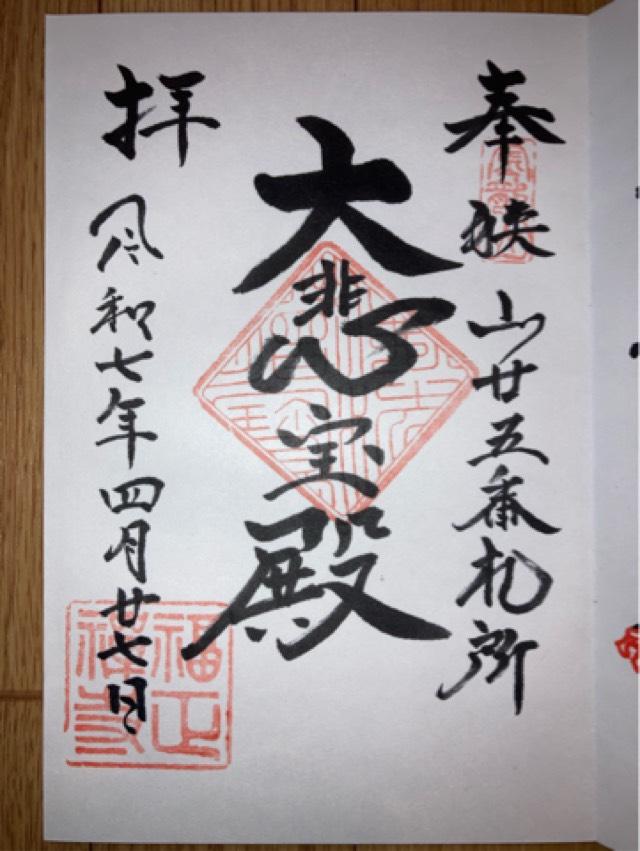 奉 狭山廿五番札所
大悲宝殿
拝 令和七年四月廿七日
福正
禪寺